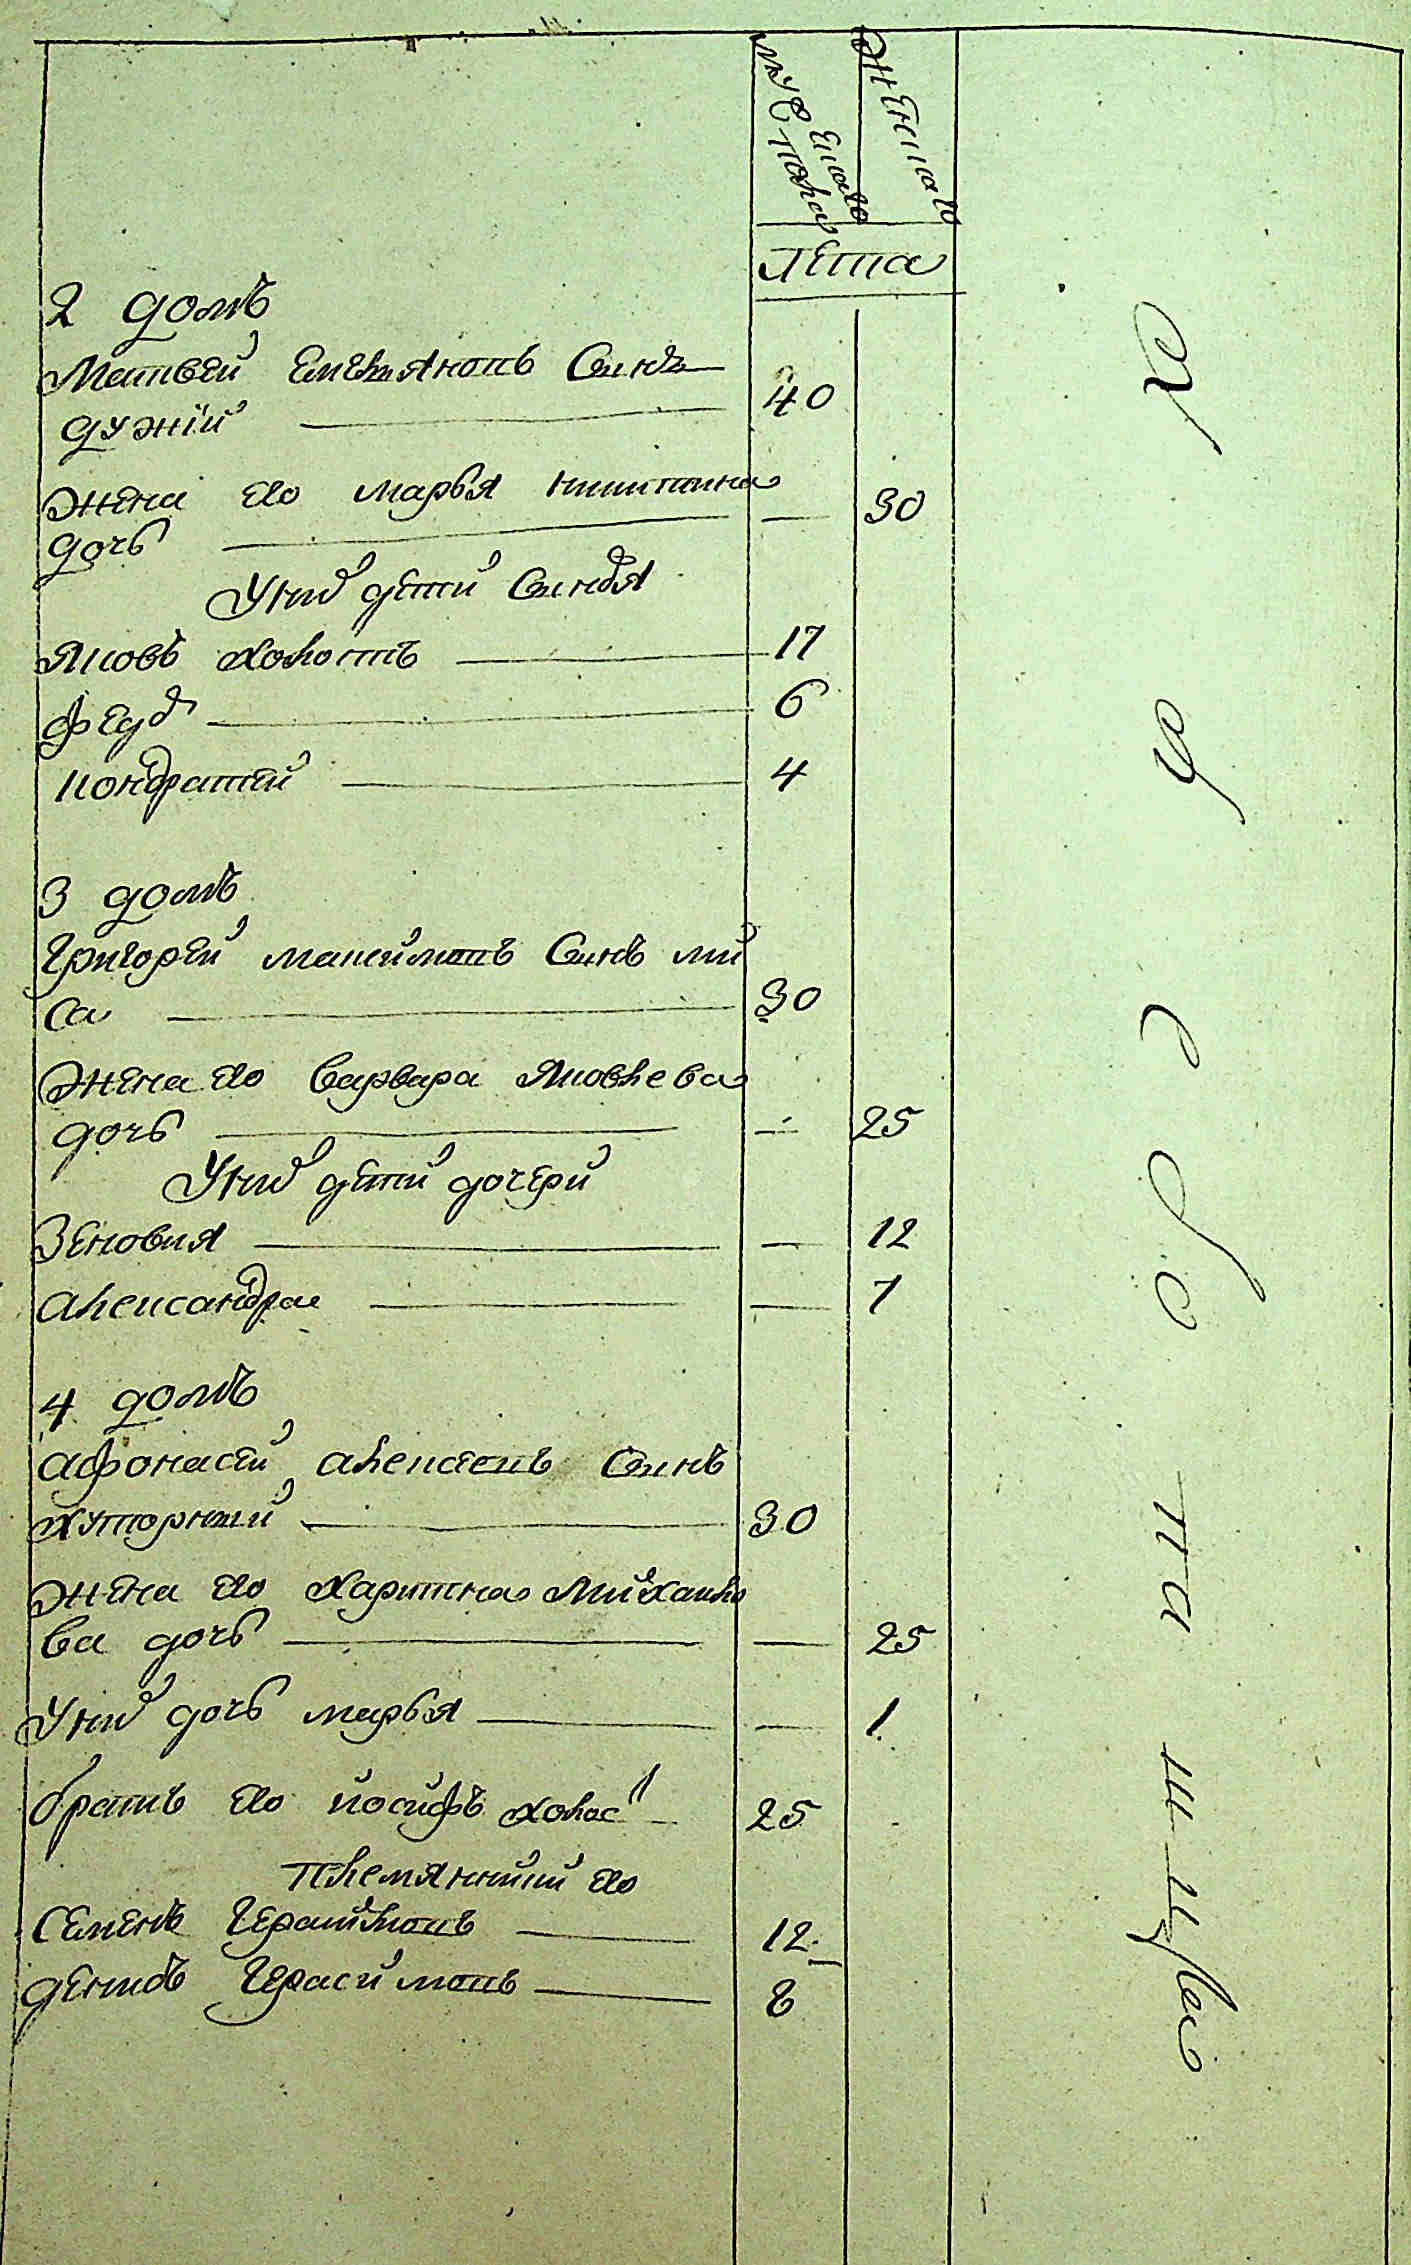 мужеска пола
женска
лета
2 домъ
Матвей Емельяновъ синъ
дужiй 40
жена его марья никитина
дочь 30
У них дети синовя
Яковъ холостъ 17
федор 6
кондратей 4
3 домъ
Григорей максимовъ синъ ли
са 30
жена его варвара яковлева
дочь 25
У них дети дочери
Зеновия 12
александра 7
4 домъ
афонасей алексеевъ синъ
хуторний 30
жена его харитина михайло
ва дочь 25
У них дочь марья 1
братъ его иосифъ холос 25
племянники его
Семенъ Герасимовъ 12
денисъ Герасимовъ 8